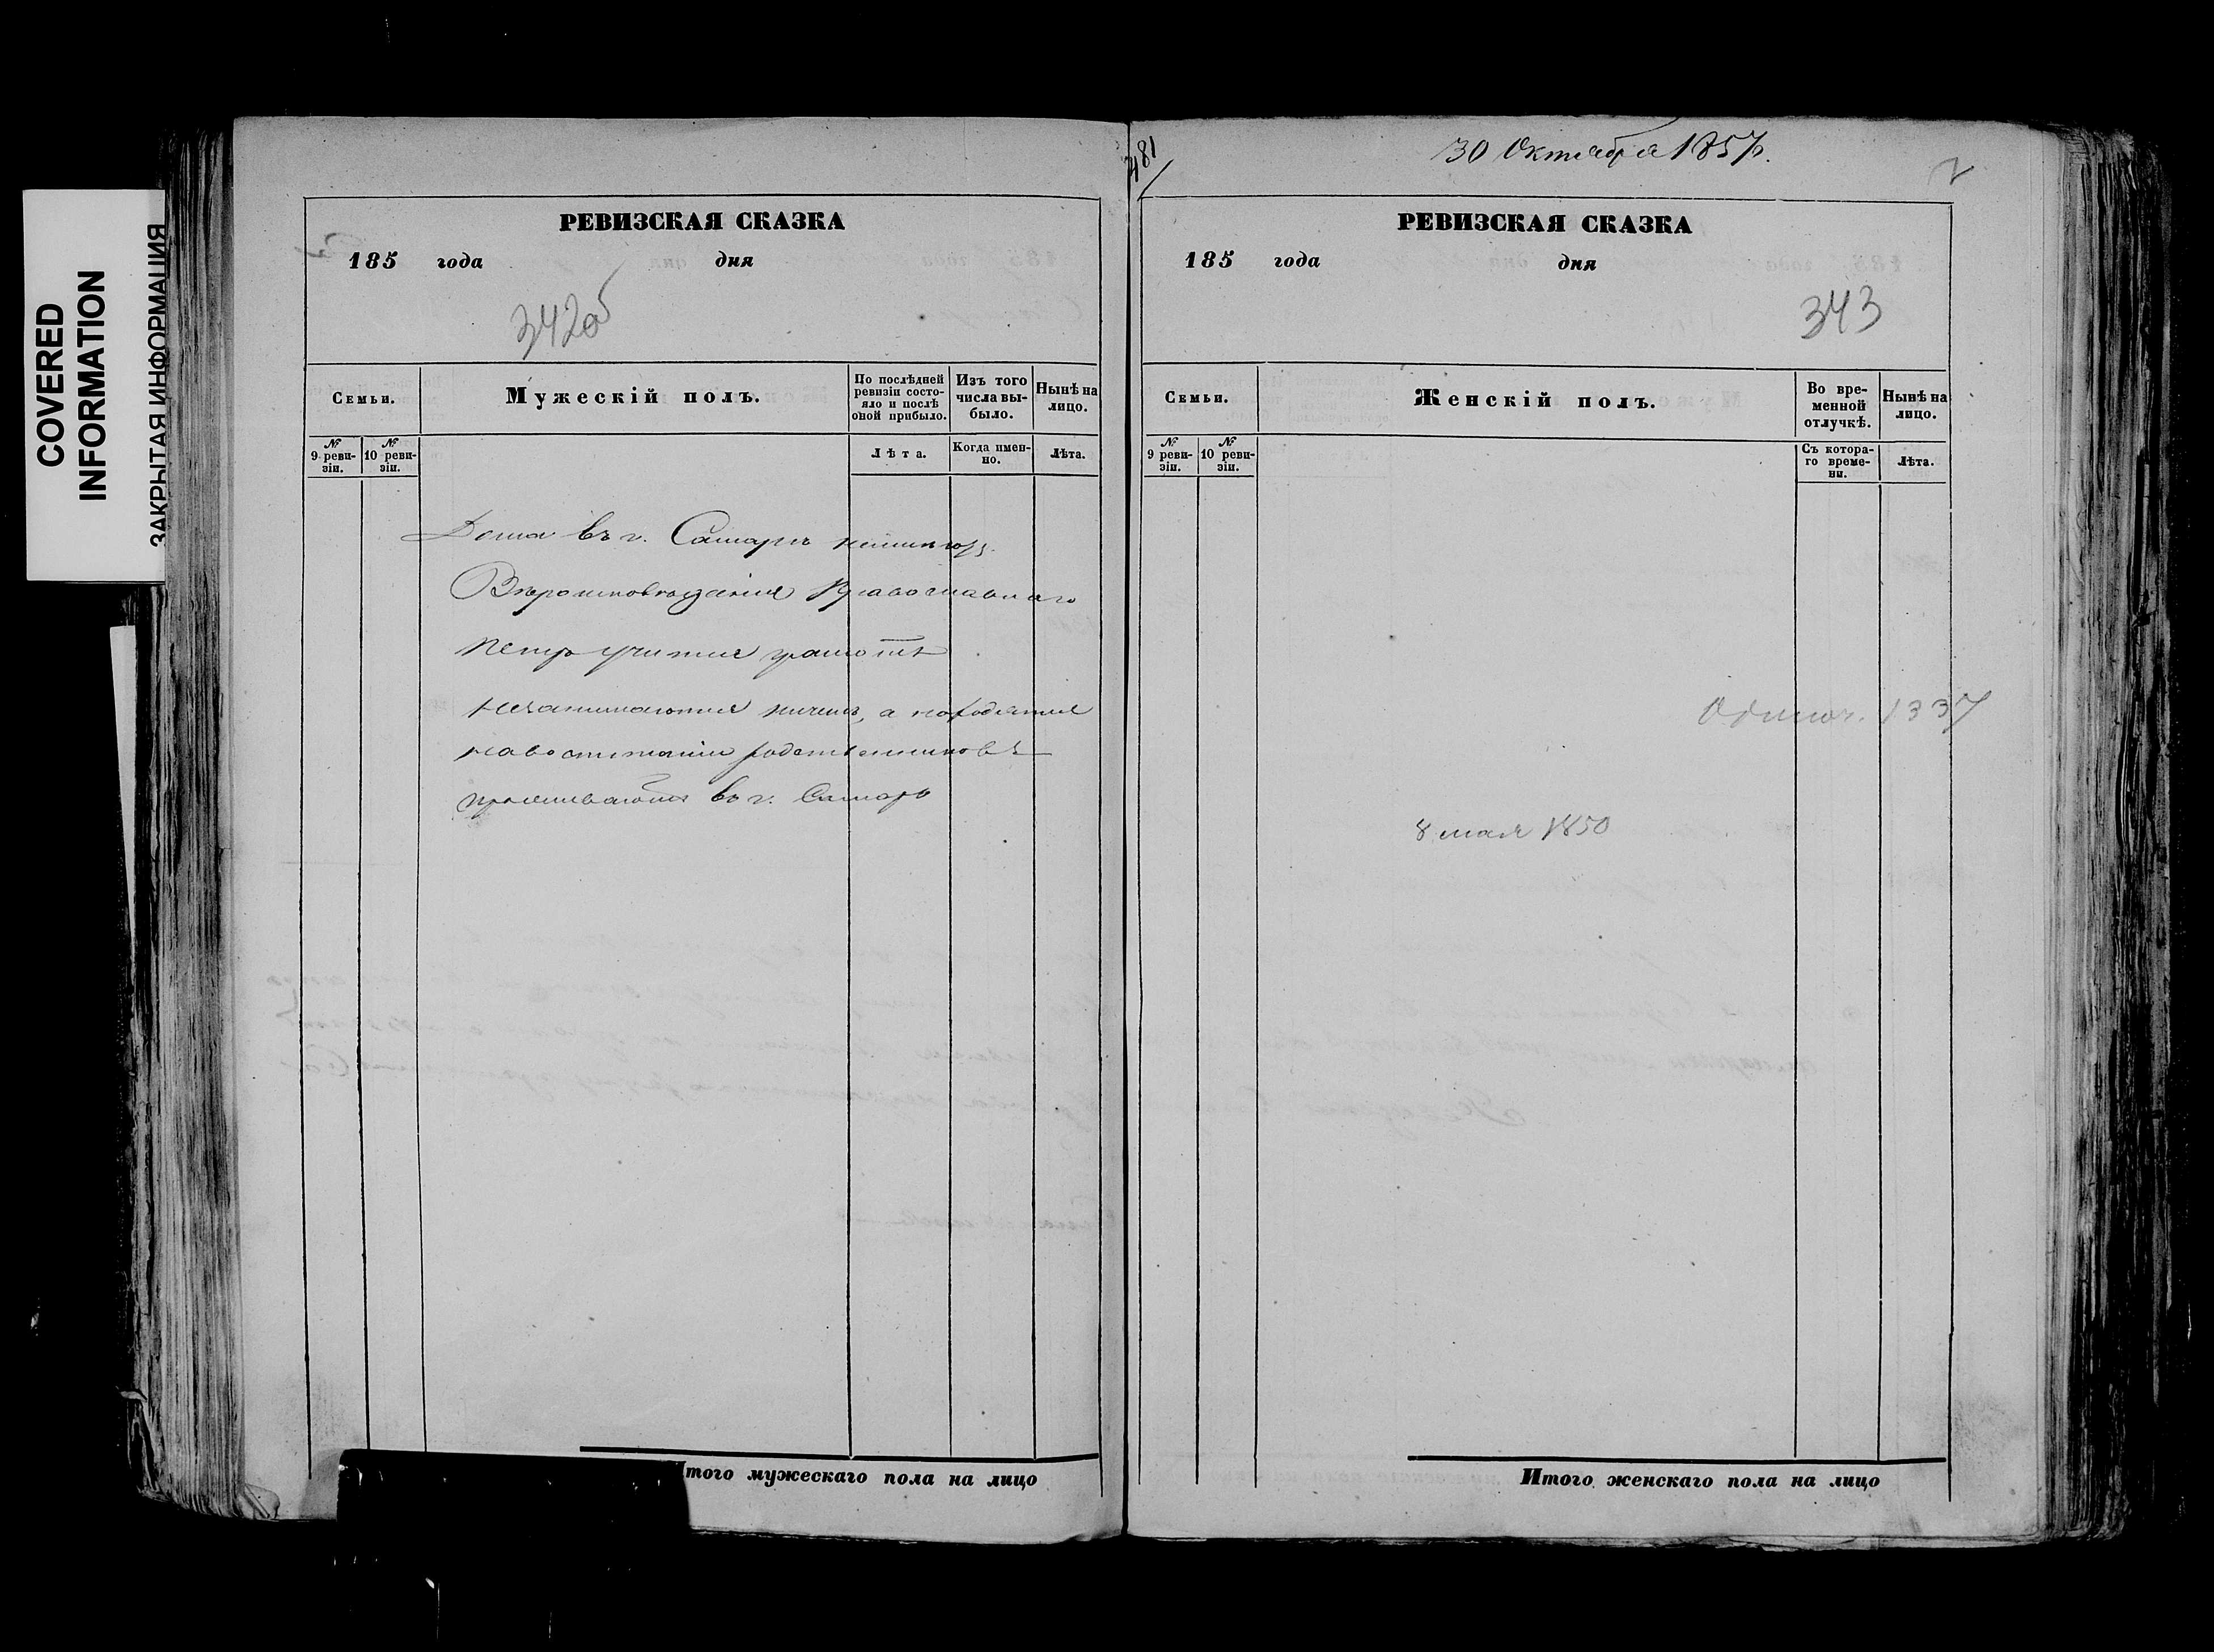 COVERED
INFORMATION
ЗАКРЫТАЯ ИНФОРМАЦИЯ
РЕВИЗСКАЯ СКАЗКА
185 года дня
342об
Семьи.
Мужескій полъ.
По послѣдней ревизіи состояло и послѣ оной прибыло.
Изъ того числа выбыло.
Нынѣ на лицо.
№ 9 ревизіи.
№ 10 ревизіи.
Лѣта.
Когда именно.
Лѣта.
Дома въ г. Самарѣ
Вѣроисповѣданія Православнаго
Петръ учится грамотѣ
незанимаются ничемъ, а находятся
на воспитаніи родственниковъ
проживаютъ въ г. Самарѣ
того мужескаго пола на лицо
481
30 Октября 1857 г.
2
РЕВИЗСКАЯ СКАЗКА
185 года дня
343
Семьи.
Женскій полъ.
Во временной отлучкѣ.
Нынѣ на лицо.
№ 9 ревизіи.
№ 10 ревизіи.
Съ котораго времени.
Лѣта.
1337
8 мая 1850
Итого женскаго пола на лицо